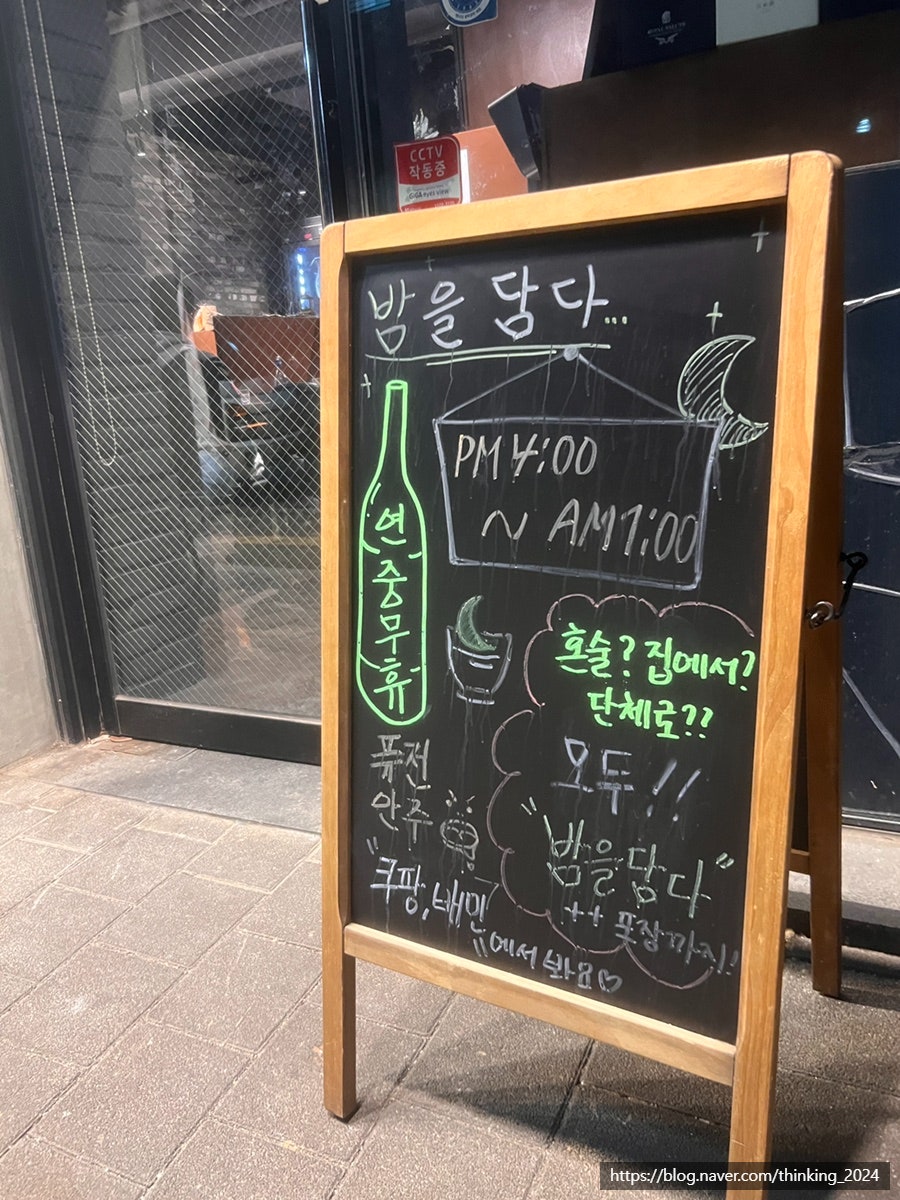 CCTV
작동중
GiGA eyes view
밤을 담다...
PM 4:00
~ AM 1:00
연
중
무
휴
혼술? 집에서?
단체로??
모두!!
"밤을담다"
++ 포장까지!
퓨전
안주
"쿠팡, 배민"
에서 봐요♡
https://blog.naver.com/thinking_2024